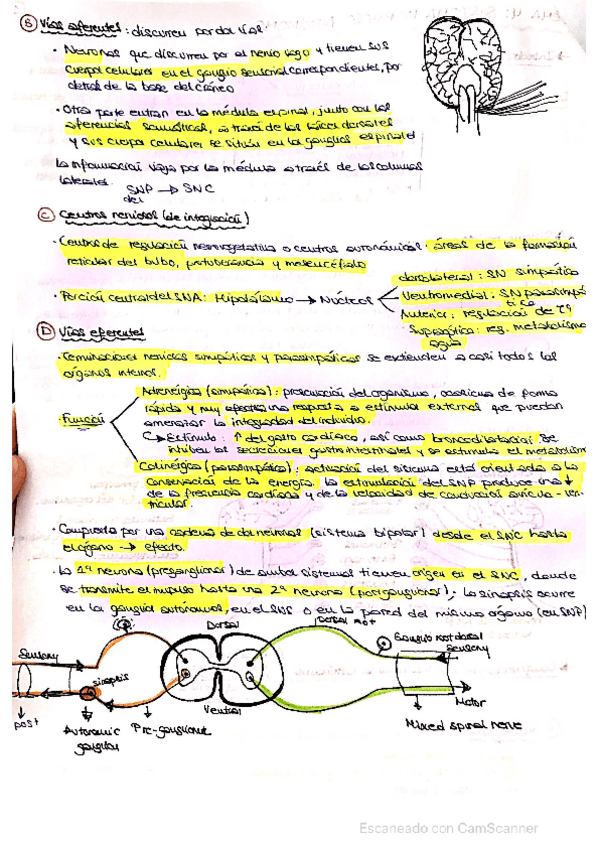 B Vías aferentes: discurren por dos vías:
· Neuronas que discurren por el nervio vago y tienen sus
cuerpos celulares en el ganglio sensorial correspondientes, por
detrás de la base del cráneo
· Otra parte entran en la médula espinal, junto con las
aferencias somáticas, a través de las raíces dorsales
y sus cuerpos celulares se sitúan en los ganglios espinales
La información viaja por la médula a través de las columnas
laterales.
SNP → SNC
del
C Centros nerviosos (de integración)
· Centros de regulación neurovegetativa o centros autonómicos: áreas de la formación
reticular del bulbo, protuberancia y mesencéfalo
dorsolateral: SN simpático
· Porción central del SNA: Hipotálamo → Núcleos
Ventromedial: SN parasimpá
tico
Anterior: regulación de Tª
Supraóptico: reg. metabolismo
agua
D Vías eferentes
· Terminaciones nerviosas simpáticas y parasimpáticas se extienden a casi todos los
órganos internos.
Función
Adrenérgica (simpático): preservación del organismo, ocasiona de forma
rápida y muy efectiva una respuesta a estímulos externos que puedan
amenazar la integridad del individuo.
↳ Estímulo: ↑ del gasto cardíaco, así como broncodilatación. Se
inhiben las secreciones gastrointestinales y se estimula el metabolismo
Colinérgica (parasimpático): activación del sistema está orientada a la
conservación de la energía. La estimulación del SNP produce una ↓
de la frecuencia cardíaca y de la velocidad de conducción aurículo-ven-
tricular.
· Compuesta por una cadena de dos neuronas (sistema bipolar) desde el SNC hasta
el órgano → efecto.
· La 1ª neurona (preganglionar) de ambos sistemas tienen origen en el SNC, donde
se transmite el impulso hasta una 2ª neurona (postganglionar). La sinapsis ocurre
en los ganglios autónomos, en el SNS o en la pared del mismo órgano (en SNP)
Sensory
Dorsal
Dorsal root
Ganglio root dorsal
sensory
sinapsis
post
Ventral
Motor
Autonomic
ganglion
Pre-ganglionar
Mixed spinal nerve
Escaneado con CamScanner